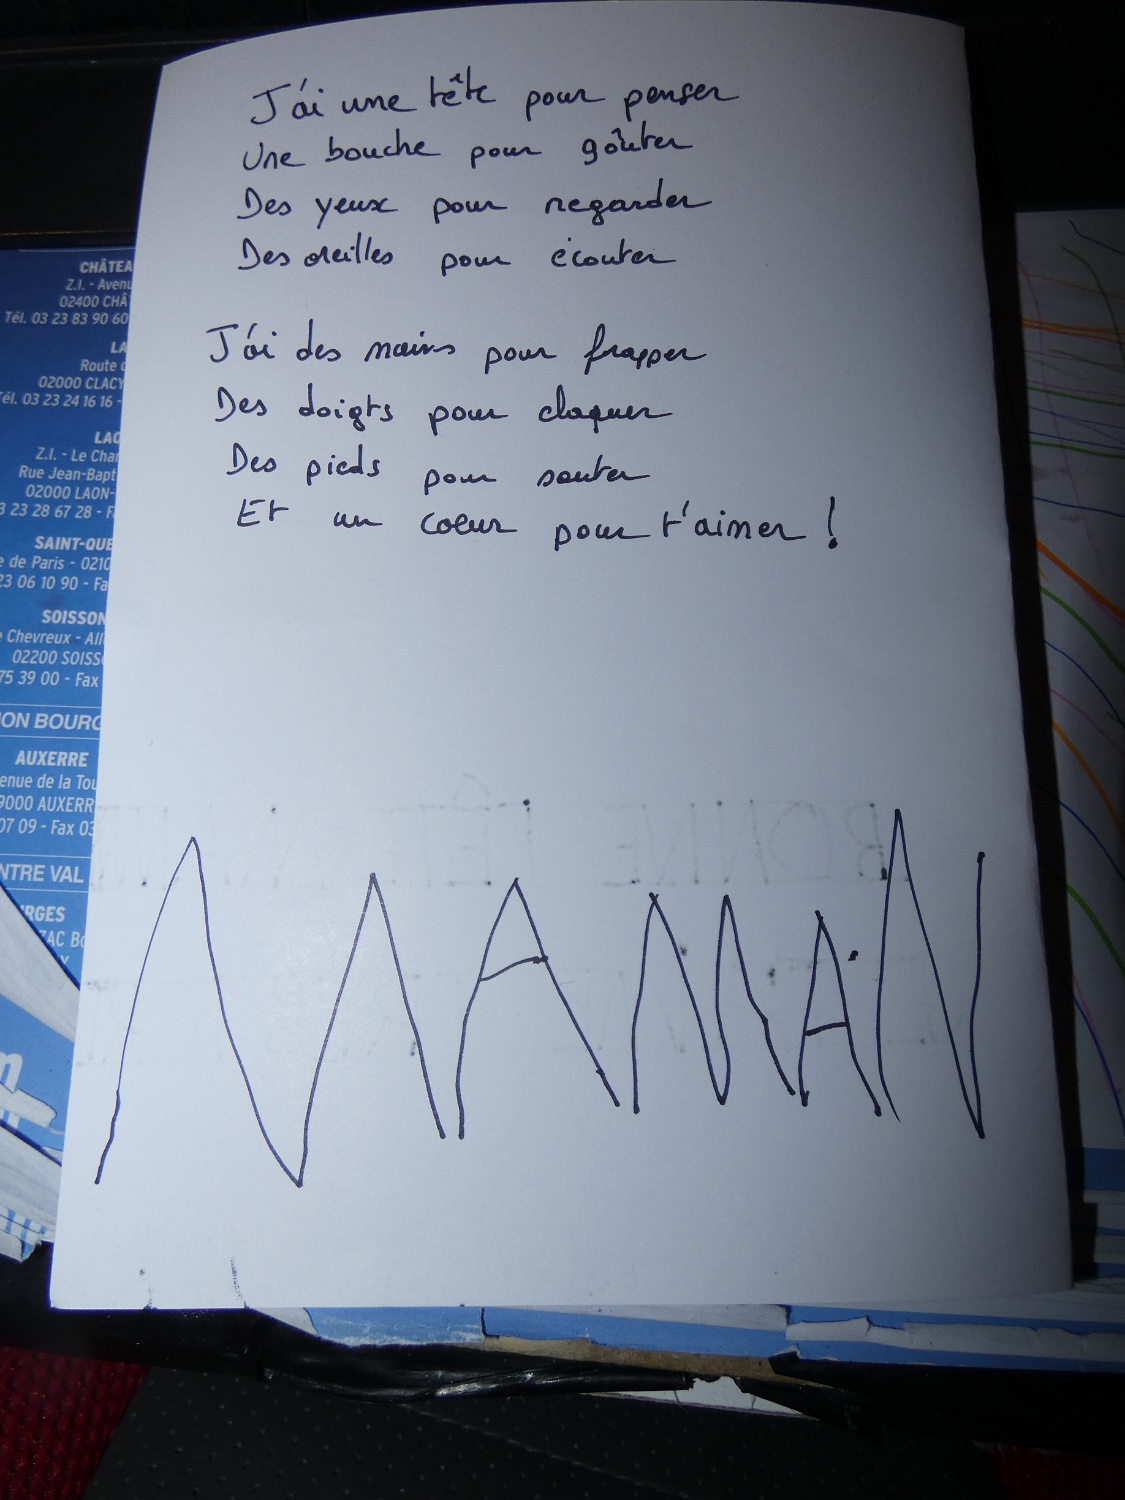 J'ai une tête pour penser
Une bouche pour goûter
Des yeux pour regarder
Des oreilles pour écouter
J'ai des mains pour frapper
Des doigts pour claquer
Des pieds pour sauter
Et un coeur pour t'aimer !
MAMAN
CHÂTEA
Z.I. - Avenu
02400 CHÂ
Tél. 03 23 83 90 60
LA
Route
02000 CLACY
Tél. 03 23 24 16 16 -
LAO
Z.I. - Le Cha
Rue Jean-Bapt
02000 LAON-
3 23 28 67 28 - F
SAINT-QUE
e de Paris - 0210
23 06 10 90 - Fa
SOISSON
Chevreux - All
02200 SOISS
75 39 00 - Fax
ION BOURG
AUXERRE
enue de la Tou
9000 AUXERR
07 09 - Fax 03
NTRE VAL
RGES
ZAC Bo